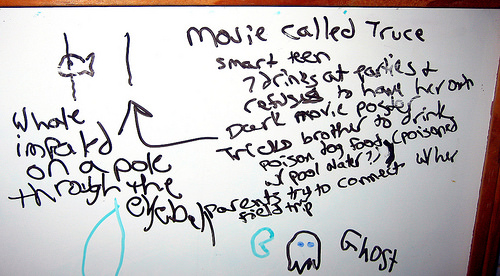 Movie called Truce
smart teen
7 drinks at parties &
refuses to have her own
Dark movie poster
Tricks brother to drink
poison dog food (poisoned
w/ pool water?)
when
parents try to connect
field trip
Whale
impaled
on a pole
through the
eyeball
Ghost